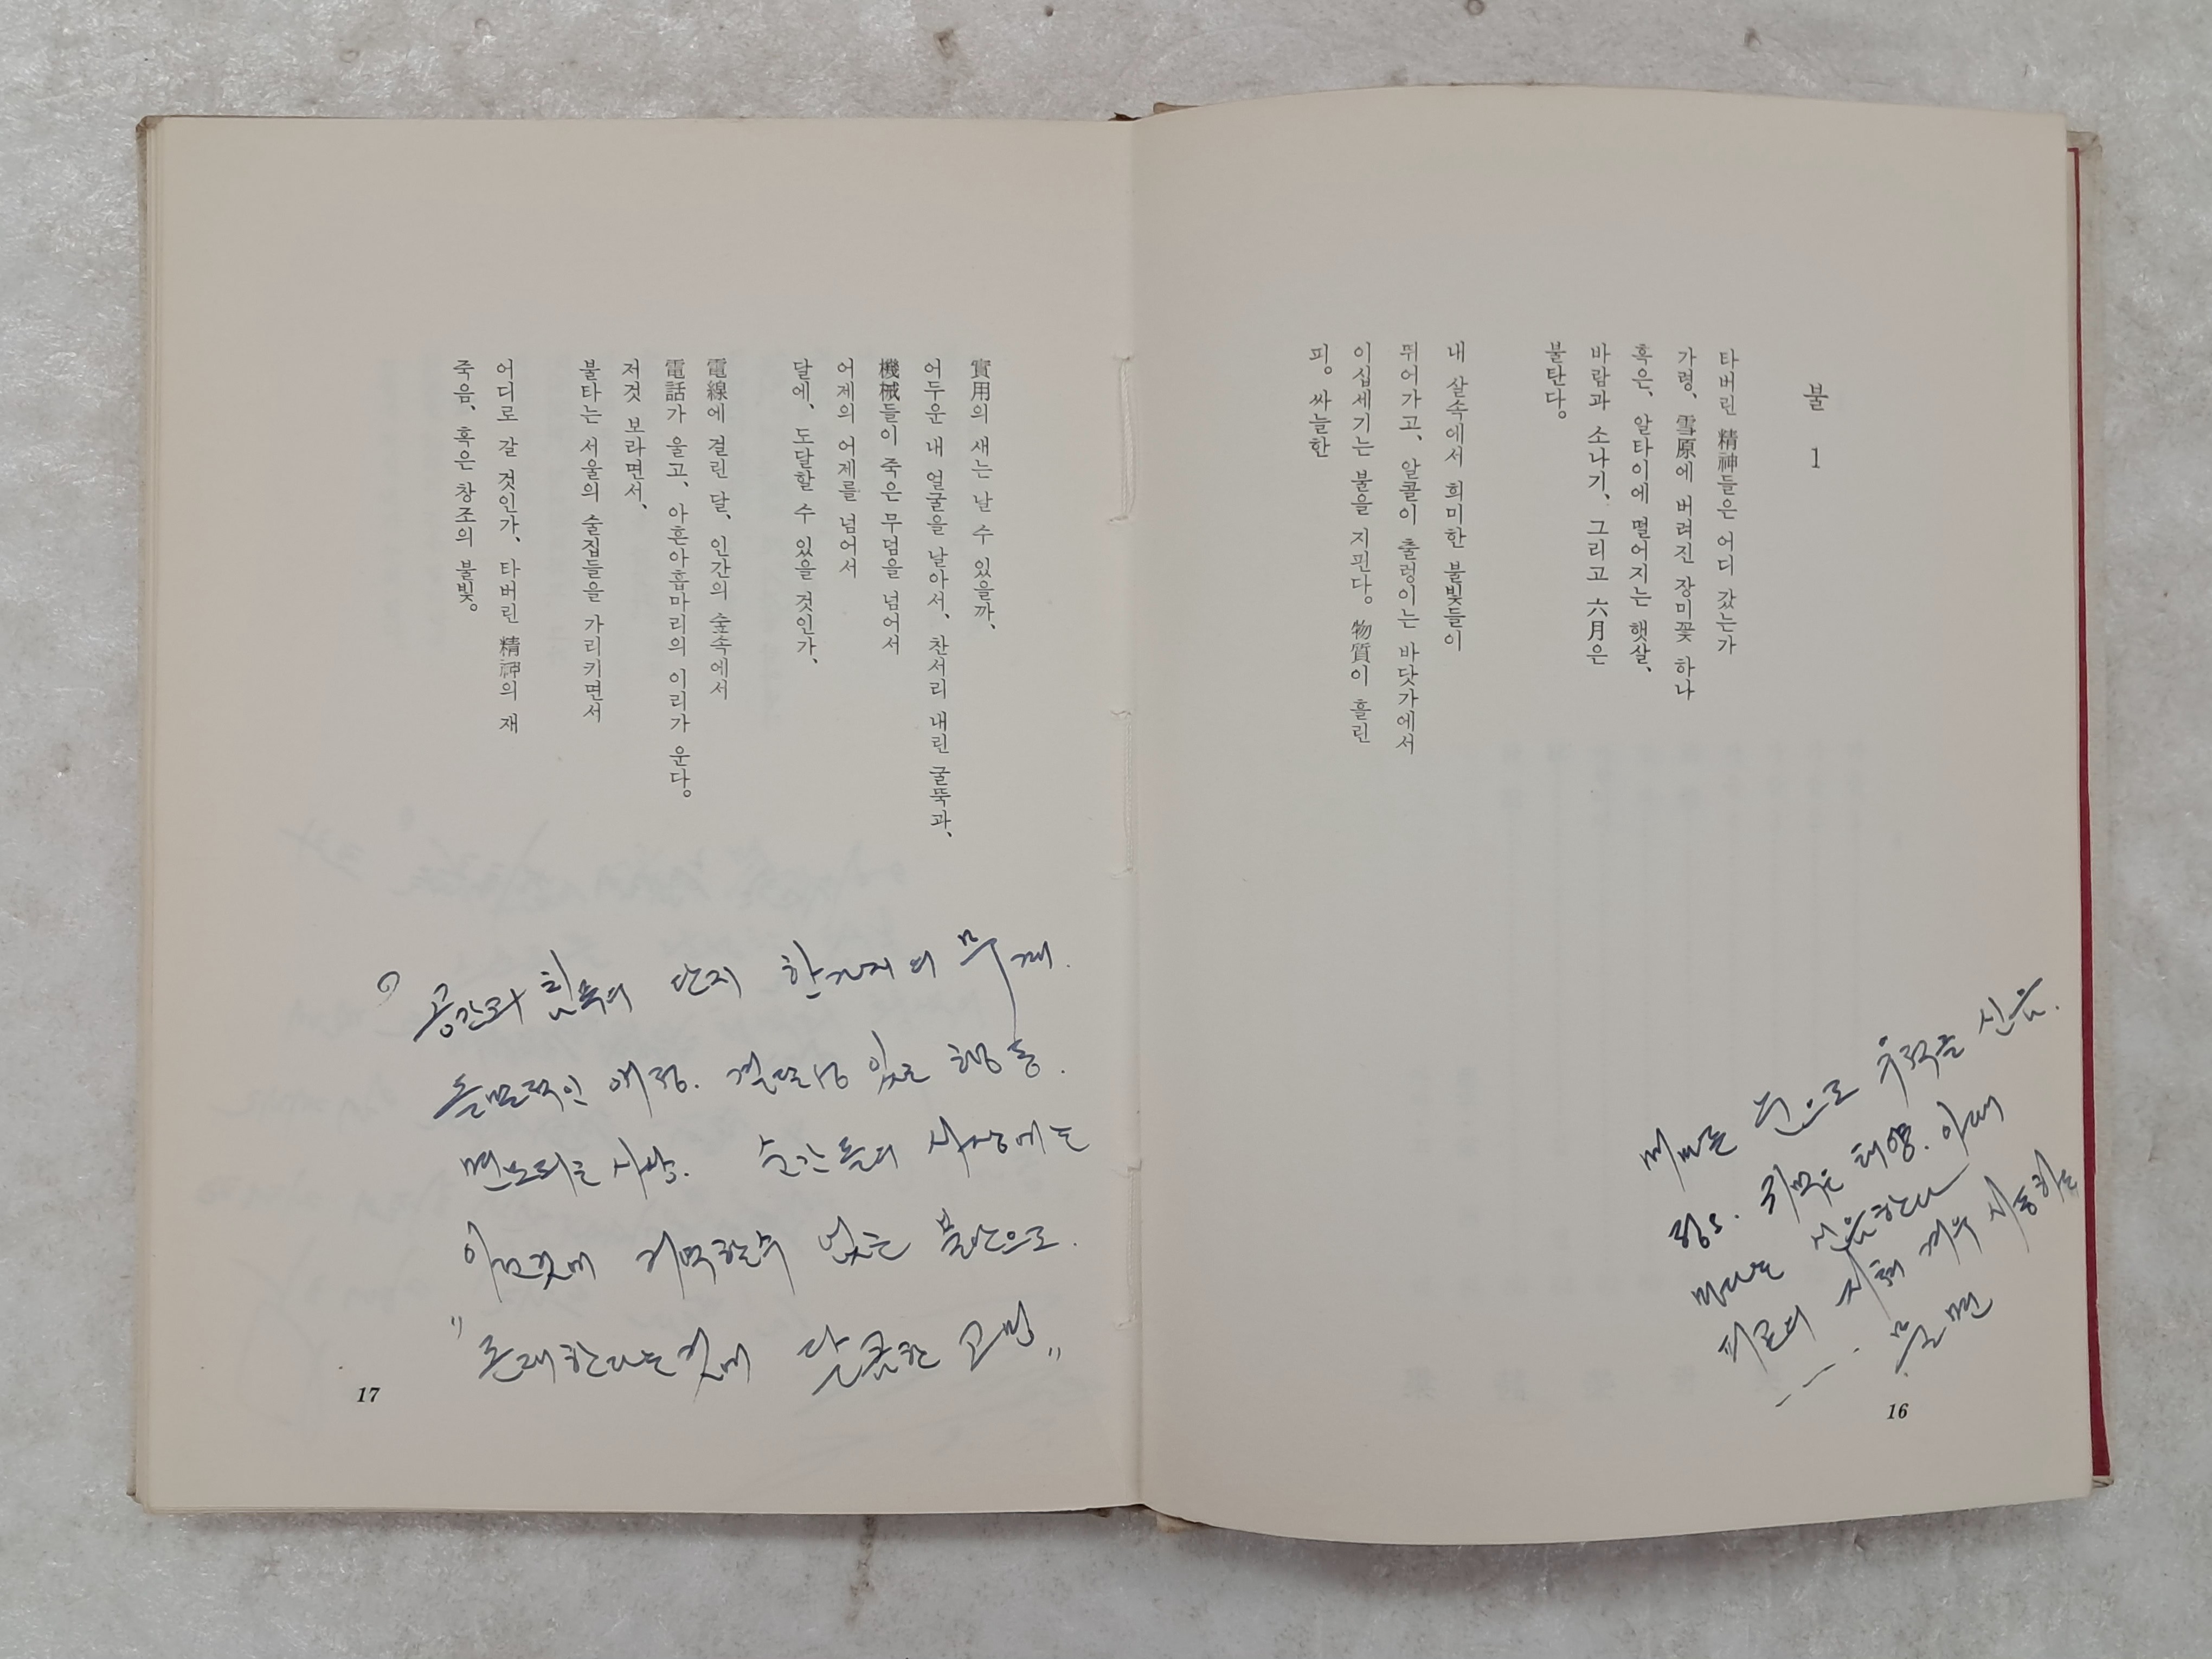 불 1
타버린 精神들은 어디 갔는가
가령、雪原에 버려진 장미꽃 하나
혹은、알타이에 떨어지는 햇살、
바람과 소나기、그리고 六月은
불탄다。
내 살속에서 희미한 불빛들이
뛰어가고、알콜이 출렁이는 바닷가에서
이십세기는 불을 지핀다。物質이 흘린
피。싸늘한
신음.
태양. 아래
신음한다
16
實用의 새는 날 수 있을까、
어두운 내 얼굴을 날아서、찬서리 내린 굴뚝과、
機械들이 죽은 무덤을 넘어서
어제의 어제를 넘어서
달에、도달할 수 있을 것인가、
電線에 걸린 달、인간의 숲속에서
電話가 울고、아흔아홉마리의 이리가 운다。
저것 보라면서、
불타는 서울의 술집들을 가리키면서
어디로 갈 것인가、타버린 精神의 재
죽음、혹은 창조의 불빛。
공간과 침묵의 단지 한가지의 무게.
돌발적인 애정. 결단성 있는 행동.
면도날 사랑. 순간들의 사상에는
아무것에 기억할수 없는 불안으로.
"존재한다는것에 달콤한 고민"
17